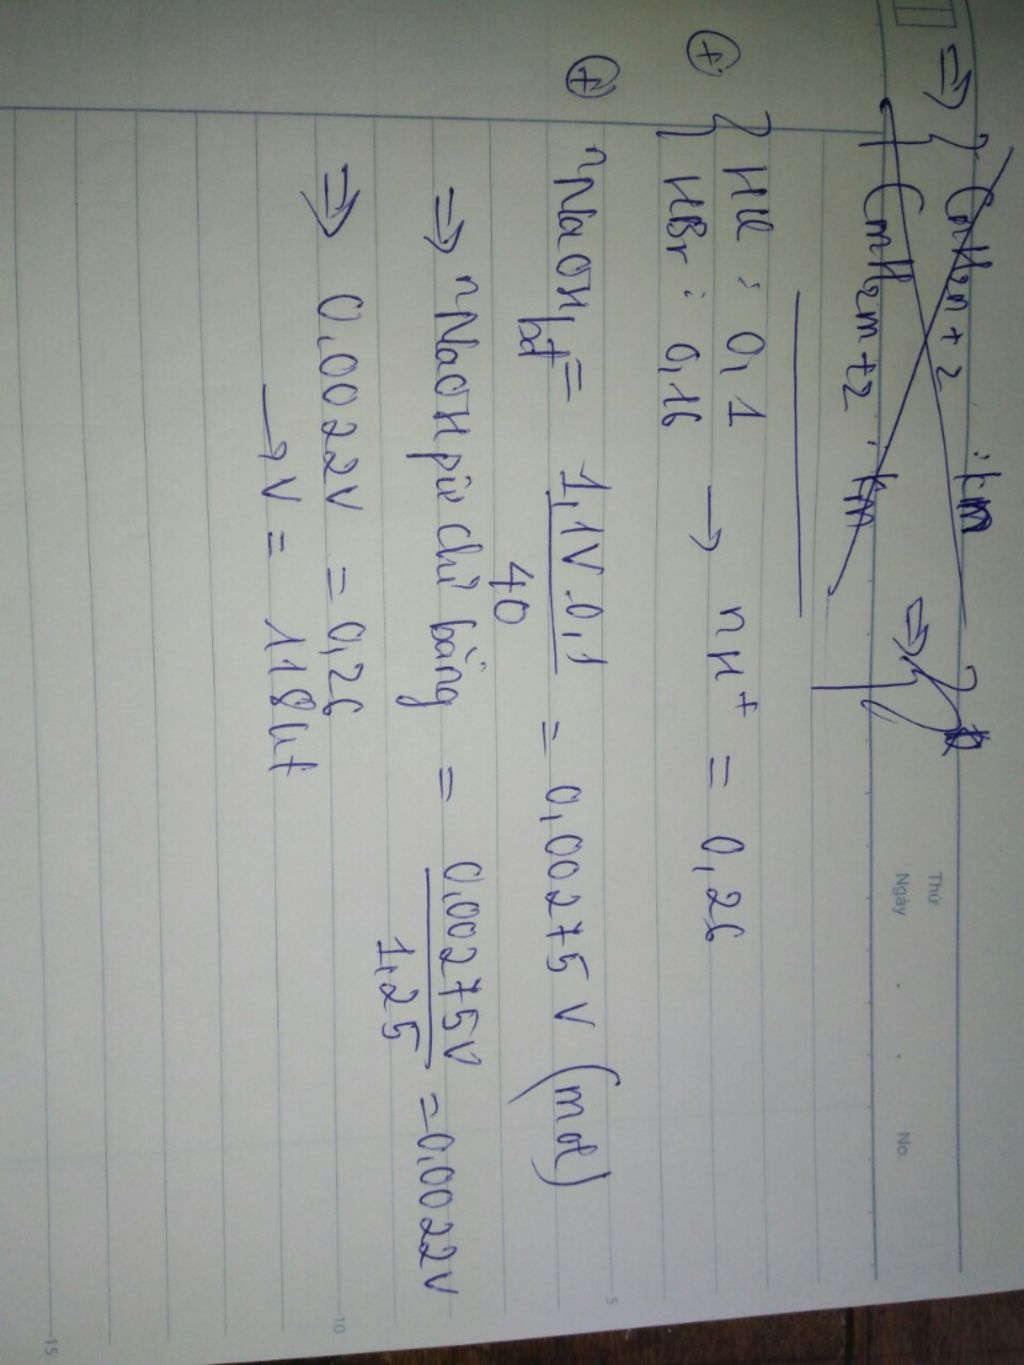 Thứ
Ngày . . No.
⇒ { CnH2n+2 :
CmH2m+2 :
⊕ { HCl : 0,1
HBr : 0,16 → nH+ = 0,26
⊕ nNaOH, bđ = 1,1V.0,1 / 40 = 0,00275 V (mol)
⇒ nNaOH pứ chỉ bằng = 0,00275V / 1,25 = 0,0022V
⇒ 0,0022V = 0,26
→ V = 118
5
10
15